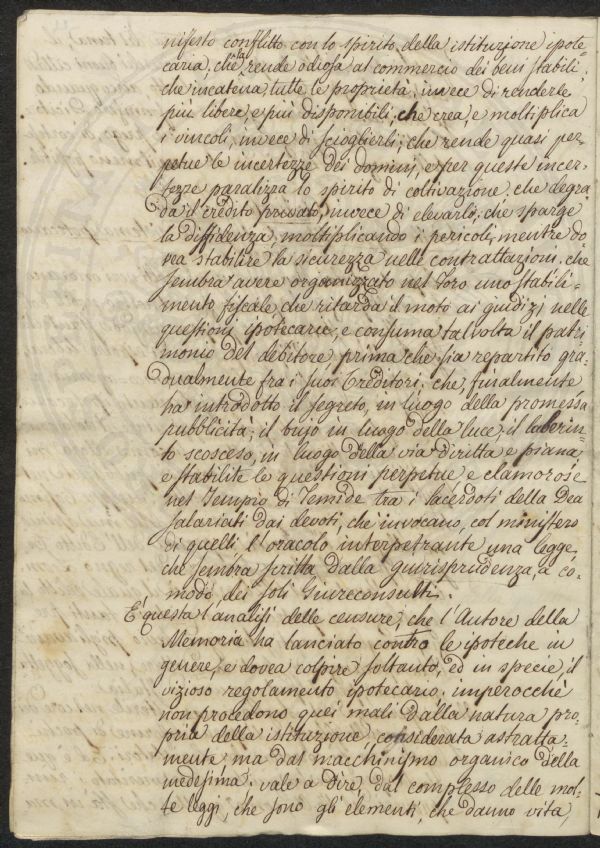 nifesto conflitto con lo spirito della istituzione ipote-
caria, che la rende odiosa al commercio dei beni stabili,
che incatena tutte le proprietà, invece di renderle
più libere, e più disponibili; che crea, e moltiplica
i vincoli, invece di scioglierli; che rende quasi per-
petue le incertezze dei dominj, e per queste incer-
tezze paralizza lo spirito di coltivazione, che degra-
da il credito privato, invece di elevarlo; che sparge
la diffidenza, moltiplicando i pericoli, mentre do-
vea stabilire la sicurezza nelle contrattazioni; che
sembra avere organizzato nel Foro uno stabili-
mento fiscale, che ritarda il moto ai giudizj nelle
questioni ipotecarie, e consuma talvolta il patri-
monio del debitore prima che sia repartito gra-
dualmente fra i suoi Creditori; che, finalmente
ha introdotto il segreto, in luogo della promessa
pubblicità; il bujo in luogo della luce; il laberin-
to scosceso, in luogo della via diritta e piana;
e stabilite le questioni perpetue, e clamorose
nel Tempio di Temide tra i sacerdoti della Dea
salariati dai devoti, che invocano, col ministero
di quelli l'oracolo interpetrante una legge,
che sembra scritta dalla guirisprudenza, a co-
modo dei soli Giureconsulti.
E' questa l'analisi delle censure, che l'Autore della
Memoria ha lanciato contro le ipoteche in
genere, e dovea colpire soltanto, ed in specie, il
vizioso regolamento ipotecario; imperocchè
non procedono quei mali dalla natura pro-
pria della istituzione, considerata astratta-
mente, ma dal macchinismo organico della
medesima; vale a dire, dal complesso delle mol-
te leggi, che sono gli elementi, che danno vita,